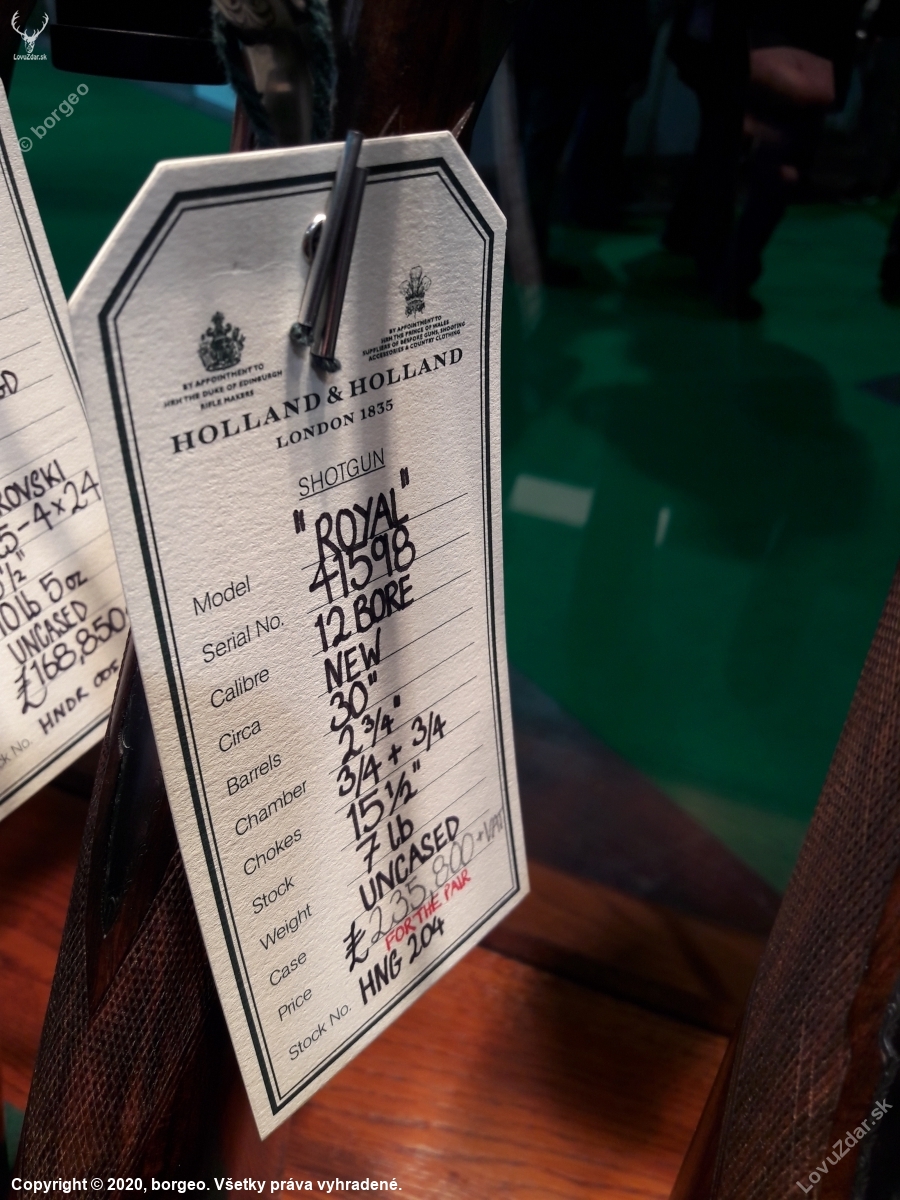 LovuZdar.sk
© borgeo
BY APPOINTMENT TO
HRH THE DUKE OF EDINBURGH
RIFLE MAKERS
BY APPOINTMENT TO
HRH THE PRINCE OF WALES
SUPPLIERS OF BESPOKE GUNS, SHOOTING
ACCESSORIES & COUNTRY CLOTHING
HOLLAND & HOLLAND
LONDON 1835
SHOTGUN
Model "ROYAL"
Serial No. 41598
Calibre 12 BORE
Circa NEW
Barrels 30"
Chamber 2 3/4"
Chokes 3/4 + 3/4
Stock 15 1/2"
Weight 7 lb
Case UNCASED
Price £235,800 + VAT
FOR THE PAIR
Stock No. HNG 204
-4x24
10lb 5oz
UNCASED
£168,850
No. HNDR
LovuZdar.sk
Copyright © 2020, borgeo. Všetky práva vyhradené.